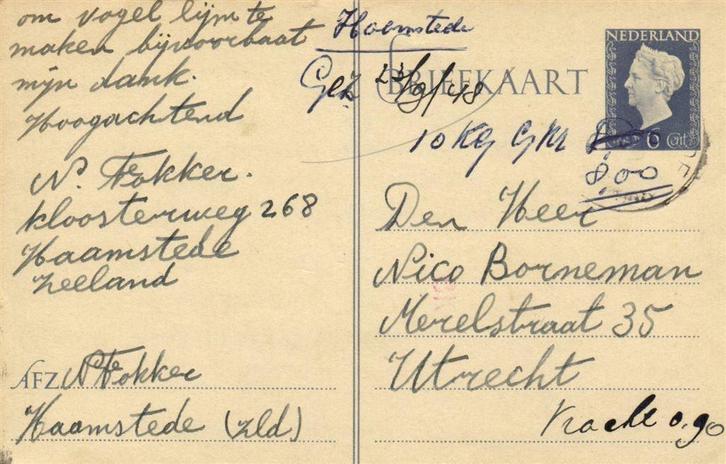 om vogel lijm te
maken bijvoorbaat
mijn dank.
Hoogachtend
N. Fokker.
Kloosterweg 268
Haamstede
Zeeland
AFZ N Fokker
Haamstede (Zld)
Haemstede
23/8/48
BRIEFKAART
NEDERLAND
6 Cnt
10 KG
800
Den Heer
Nico Borneman
Merelstraat 35
Utrecht
Vracht 0.90